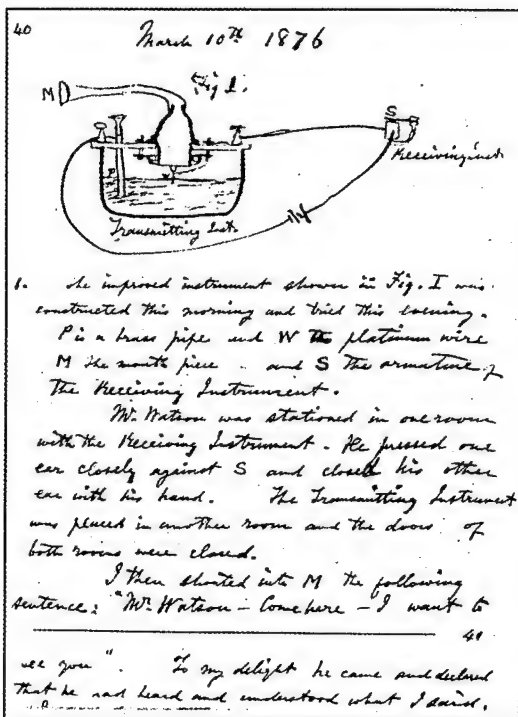 40
March 10th 1876
Fig 1.
M
S
Receiving Inst.
P
W
Transmitting Inst.
1. The improved instrument shown in Fig. I was
constructed this morning and tried this evening.
P is a brass pipe and W the platinum wire
M the mouth piece .. and S the armature of
the Receiving Instrument.
Mr. Watson was stationed in one room
with the Receiving Instrument. He pressed one
ear closely against S and closed his other
ear with his hand. The Transmitting Instrument
was placed in another room and the doors of
both rooms were closed.
I then shouted into M the following
sentence: "Mr. Watson – Come here – I want to
41
see you". To my delight he came and declared
that he had heard and understood what I said.